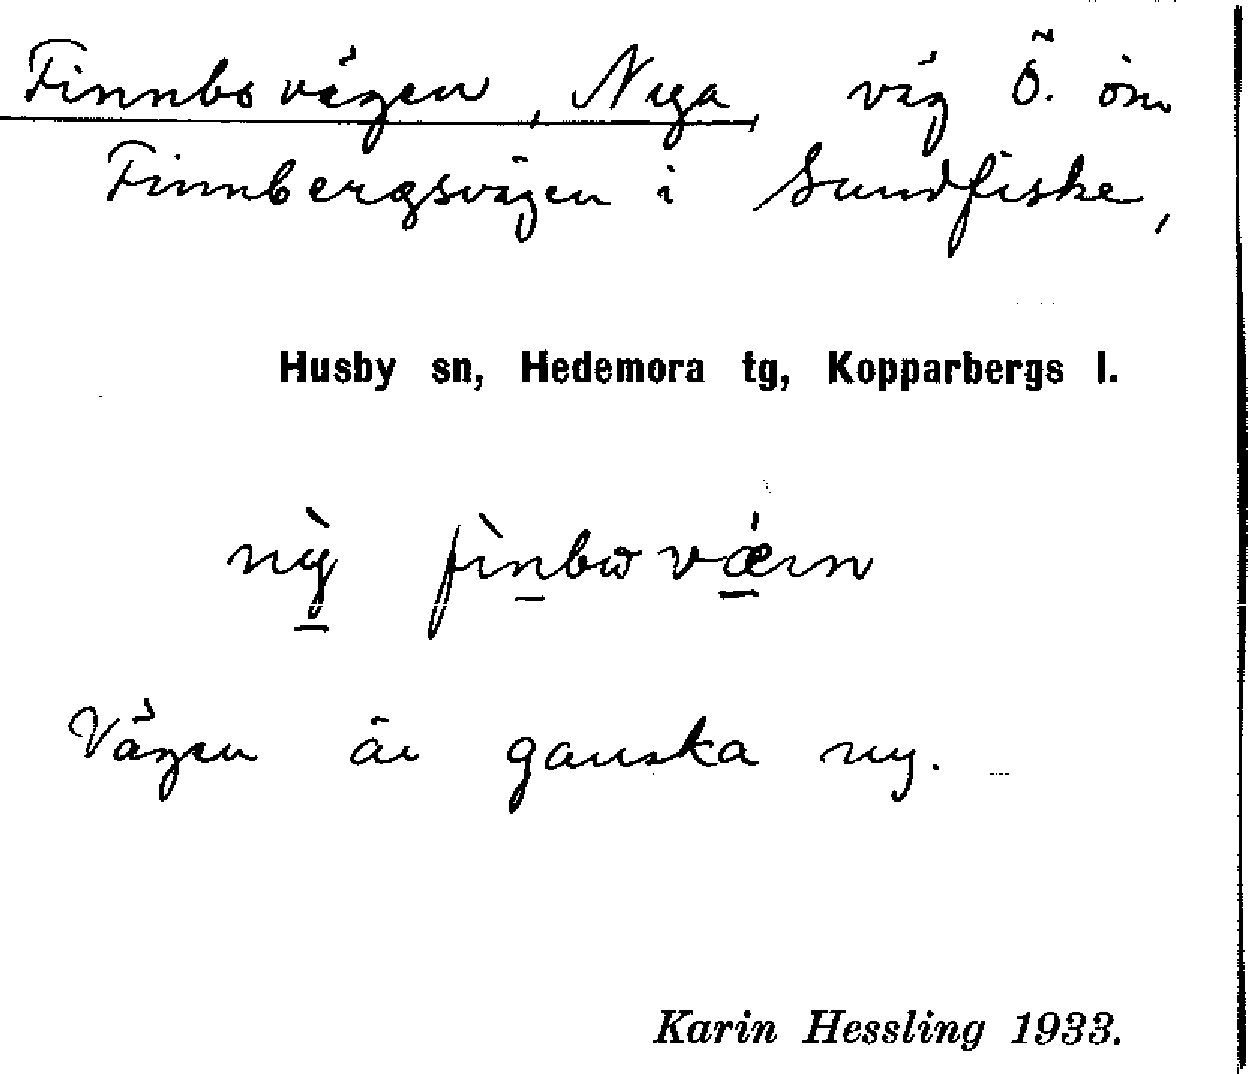 Finnbovägen, Nya väg Ö. om
Finnbergsvägen i Sundfiske,
Husby sn, Hedemora tg, Kopparbergs l.
nỳ fìnbω vǽɪn
Vägen är ganska ny.
Karin Hessling 1933.